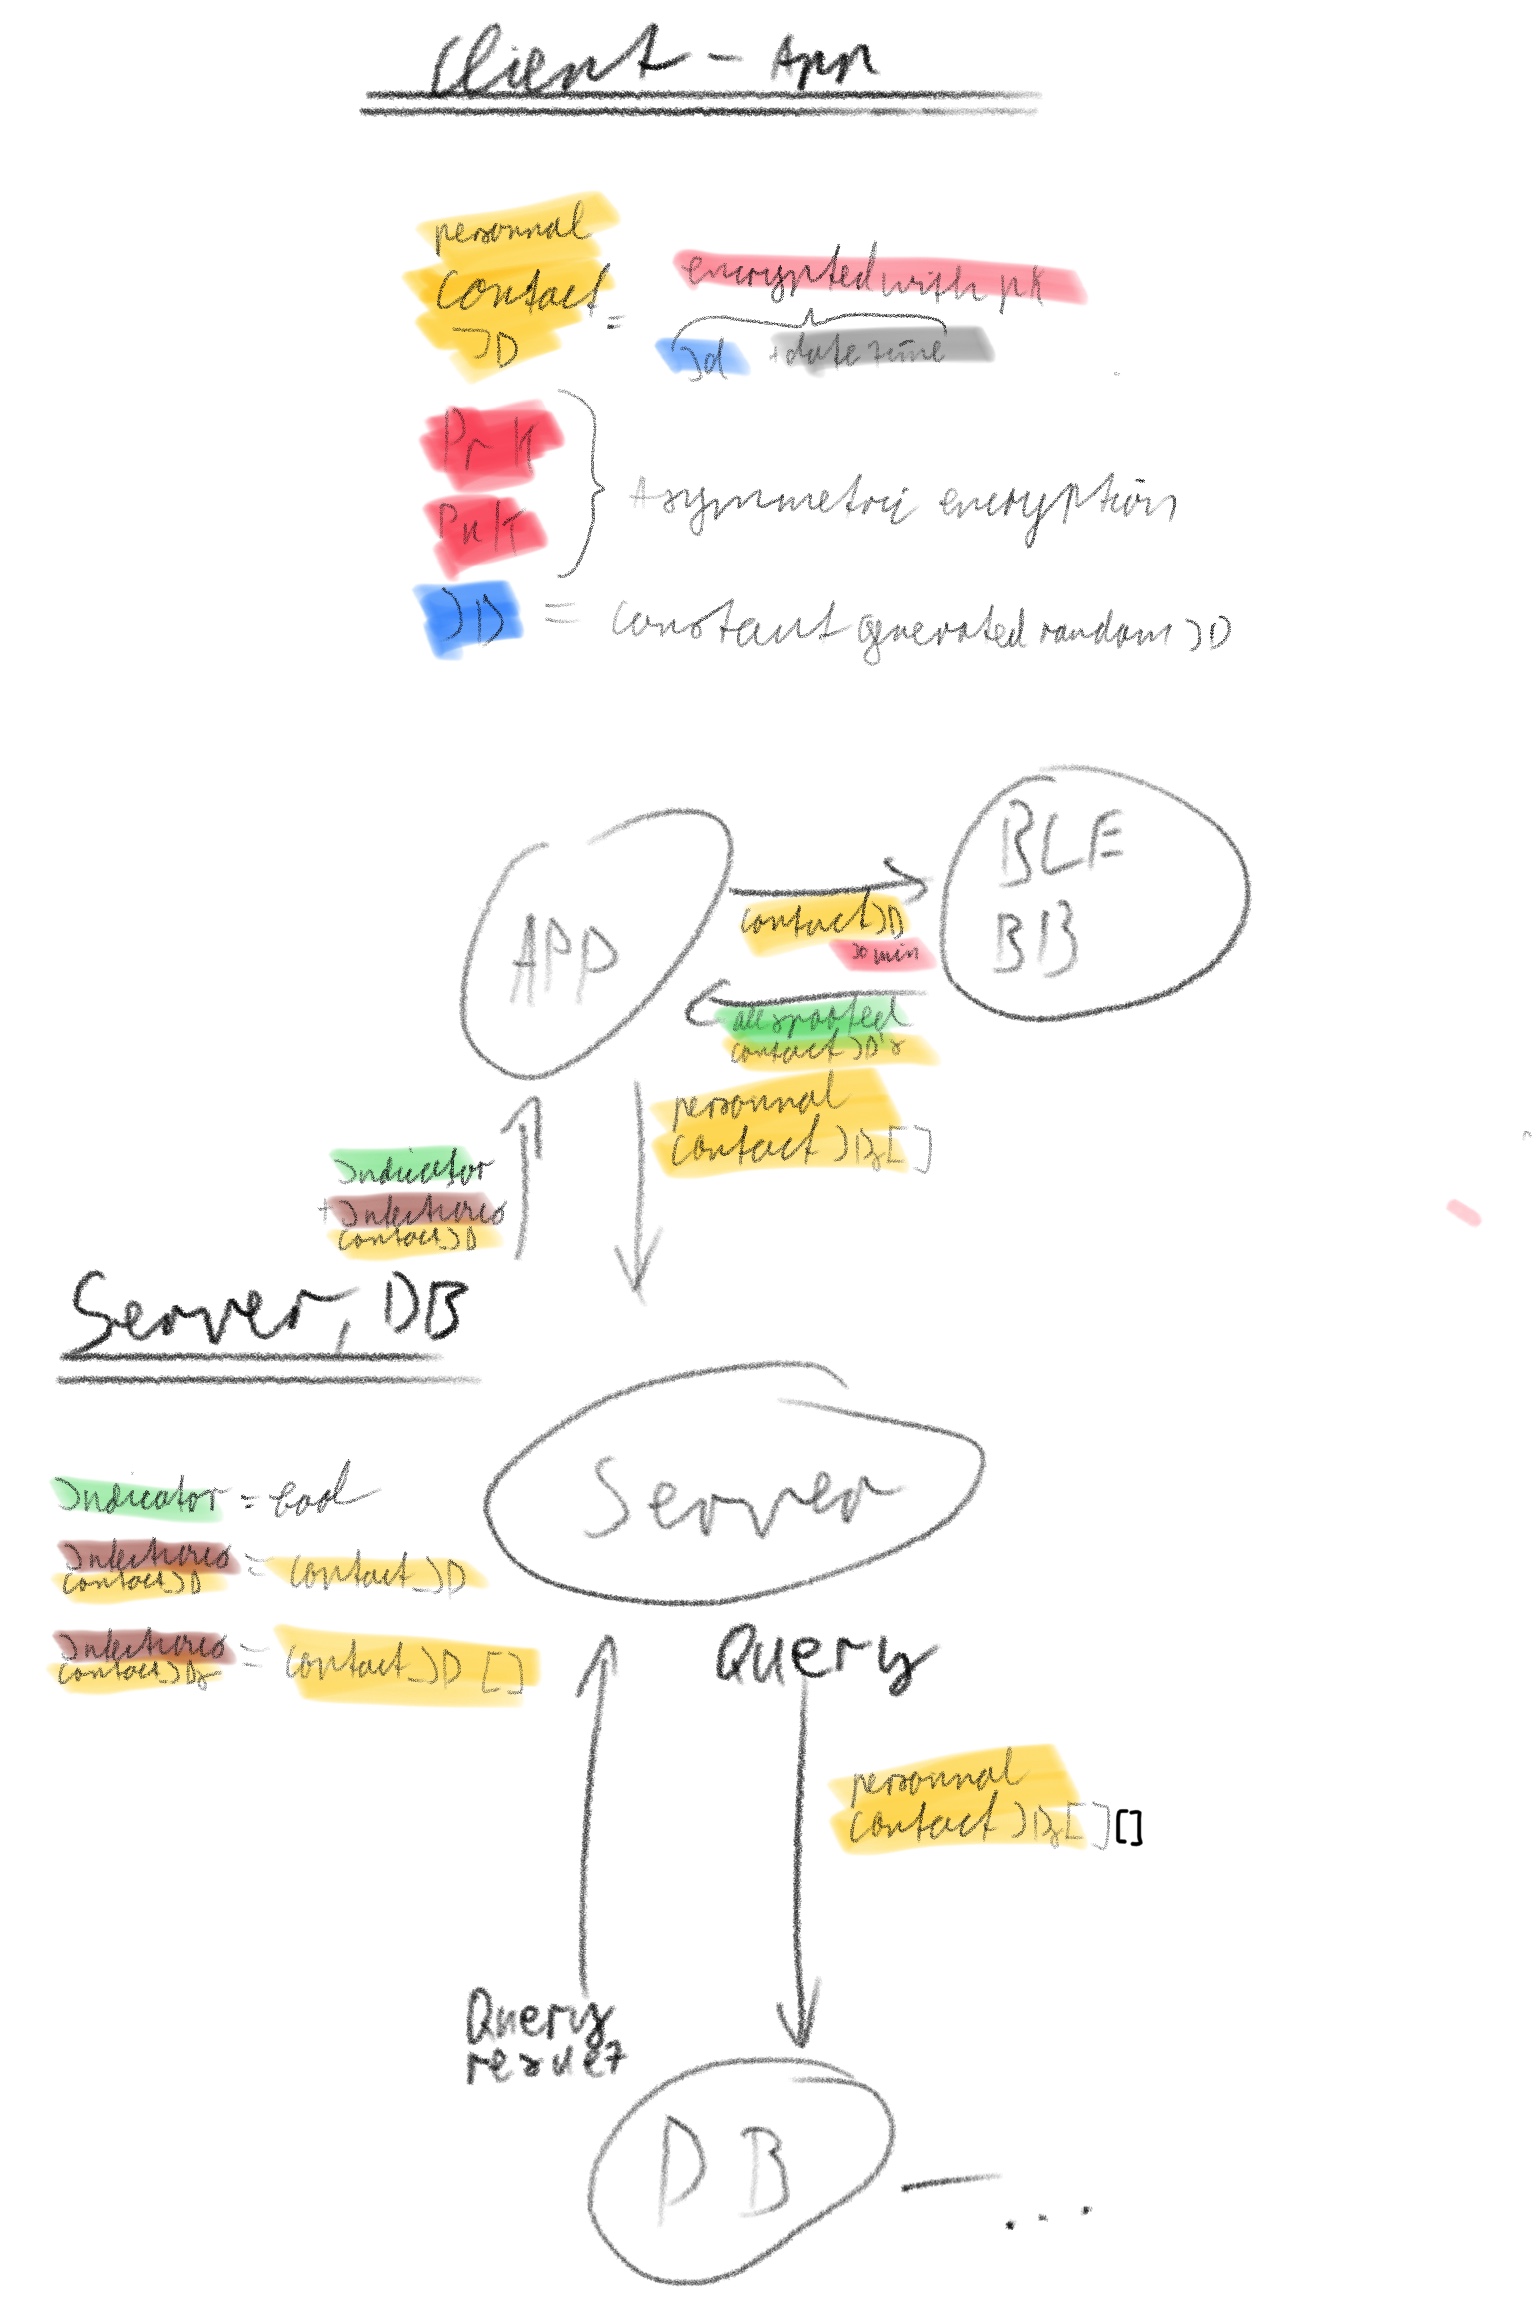 Client - App
personnal
Contact
ID
=
encrypted with pK
Id + datetime
PrK
PuK
Asymmetric encryption
ID = constant generated random ID
APP
BLE
BB
contact ID
30 min
all spotted
contact ID's
personnal
contact IDs []
Indicator
+ Infectious
contact ID
Server, DB
Server
Indicator = bool
Infectious
contact ID
= contact ID
Infectious
contact IDs
= contact ID []
Query
personnal
contact IDs [] []
Query
result
DB
...